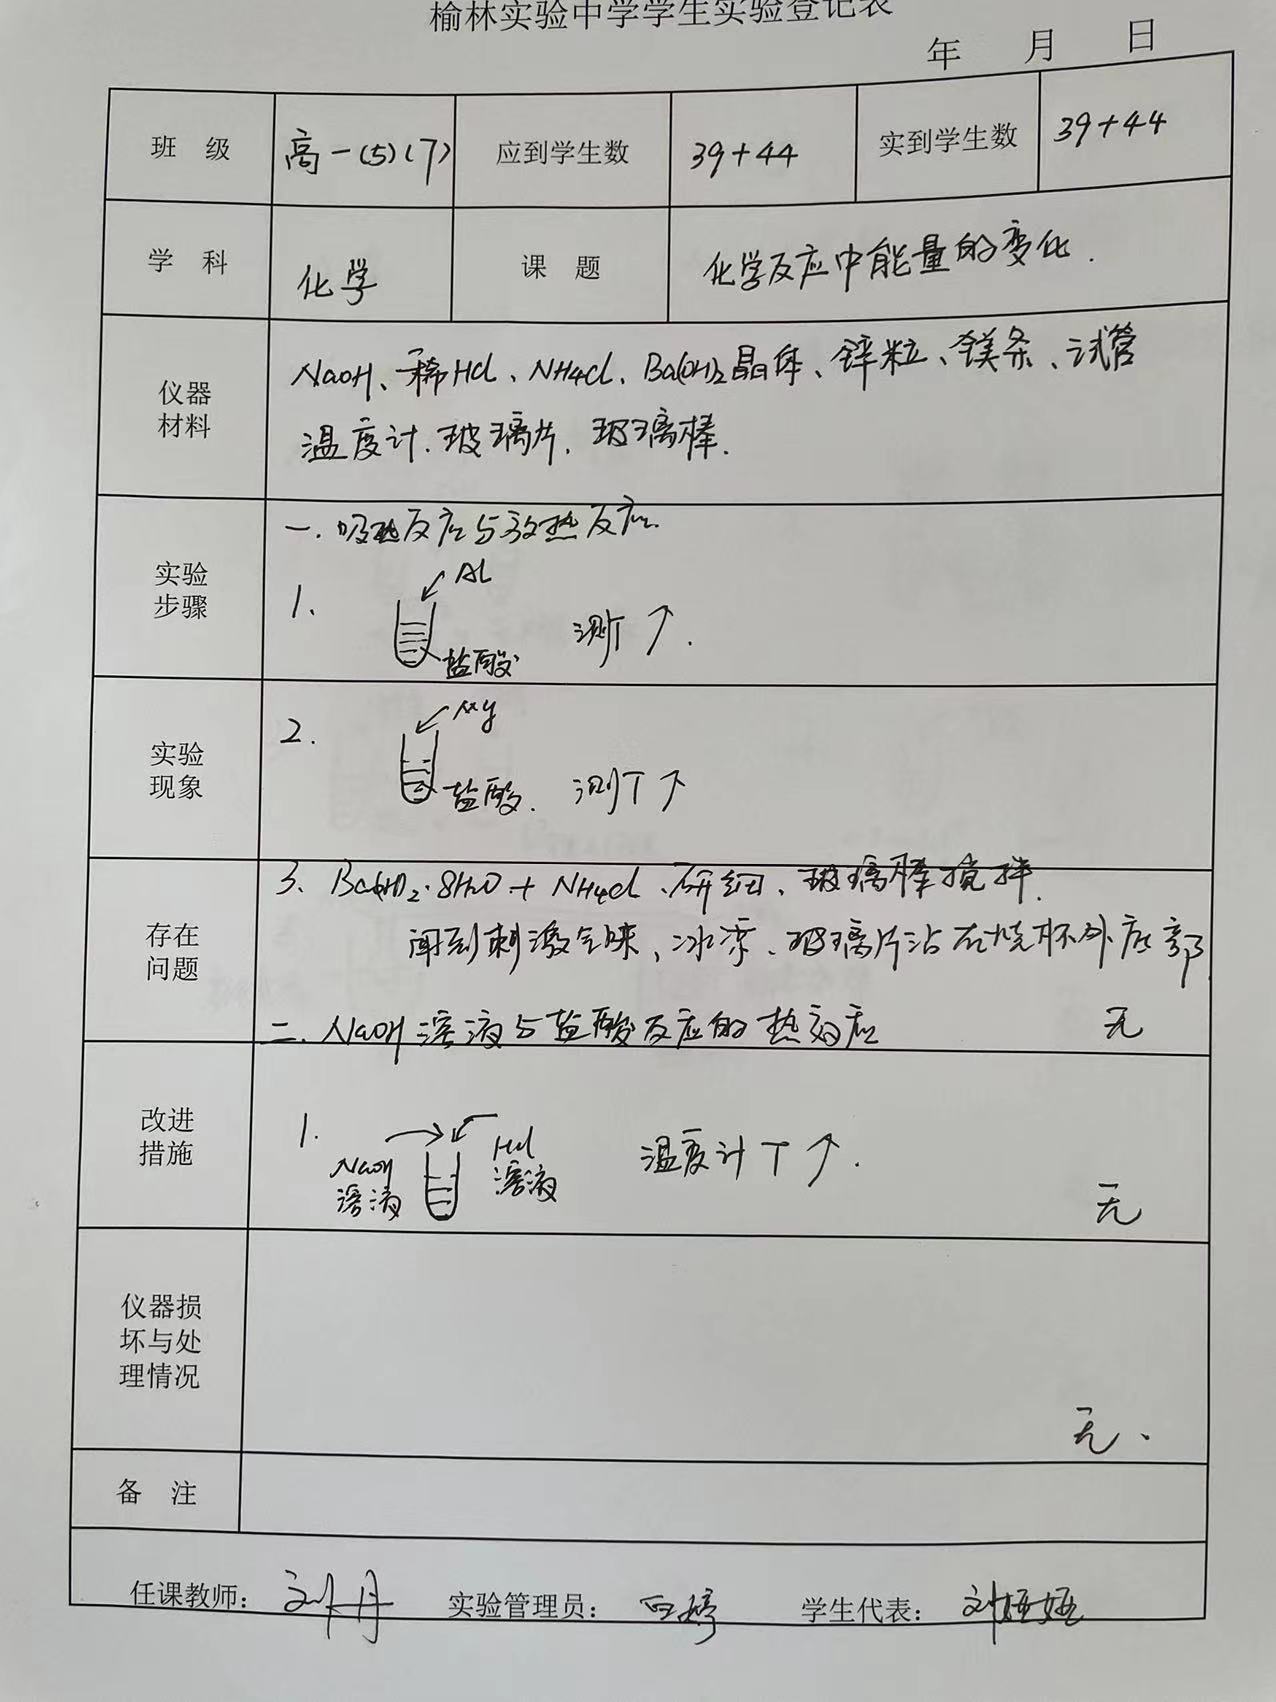 榆林实验中学学生实验登记表
年 月 日
班 级 高一(5)(7) 应到学生数 39+44 实到学生数 39+44
学 科 化学 课 题 化学反应中能量的变化.
仪器
材料
NaOH、稀HCl、NH4Cl、Ba(OH)2晶体、锌粒、镁条、试管
温度计.玻璃片.玻璃棒.
实验
步骤
一.吸热反应与放热反应.
1. Al
盐酸 测T↑.
实验
现象
2. Mg
盐酸. 测T↑
存在
问题
3. Ba(OH)2·8H2O + NH4Cl、研细、玻璃棒搅拌.
闻到刺激气味、冰凉、玻璃片沾在烧杯外底部.
二.NaOH溶液与盐酸反应的热效应 无
改进
措施
1. NaOH
溶液
HCl
溶液
温度计T↑.
无
仪器损
坏与处
理情况
无、
备 注
任课教师: 刘丹 实验管理员: 学生代表: 刘娅娅